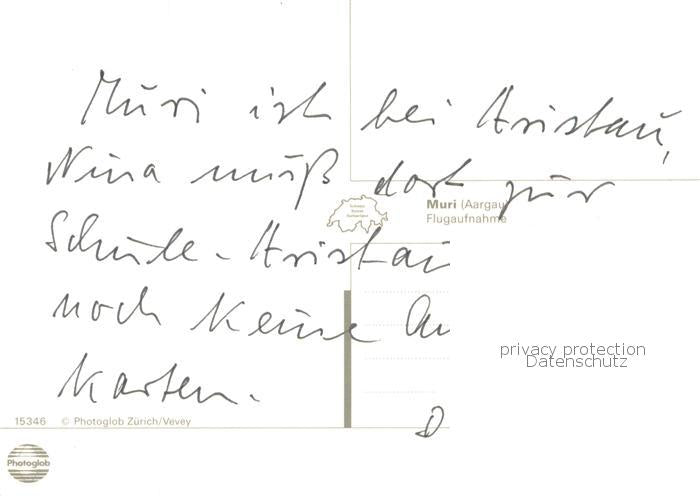 Muri ist bei Aristau,
Nina muß dort zur
Muri (Aargau)
Flugaufnahme
Schule - Aristau
noch keine An
Karten.
privacy protection
Datenschutz
15346 © Photoglob Zürich/Vevey
Photoglob